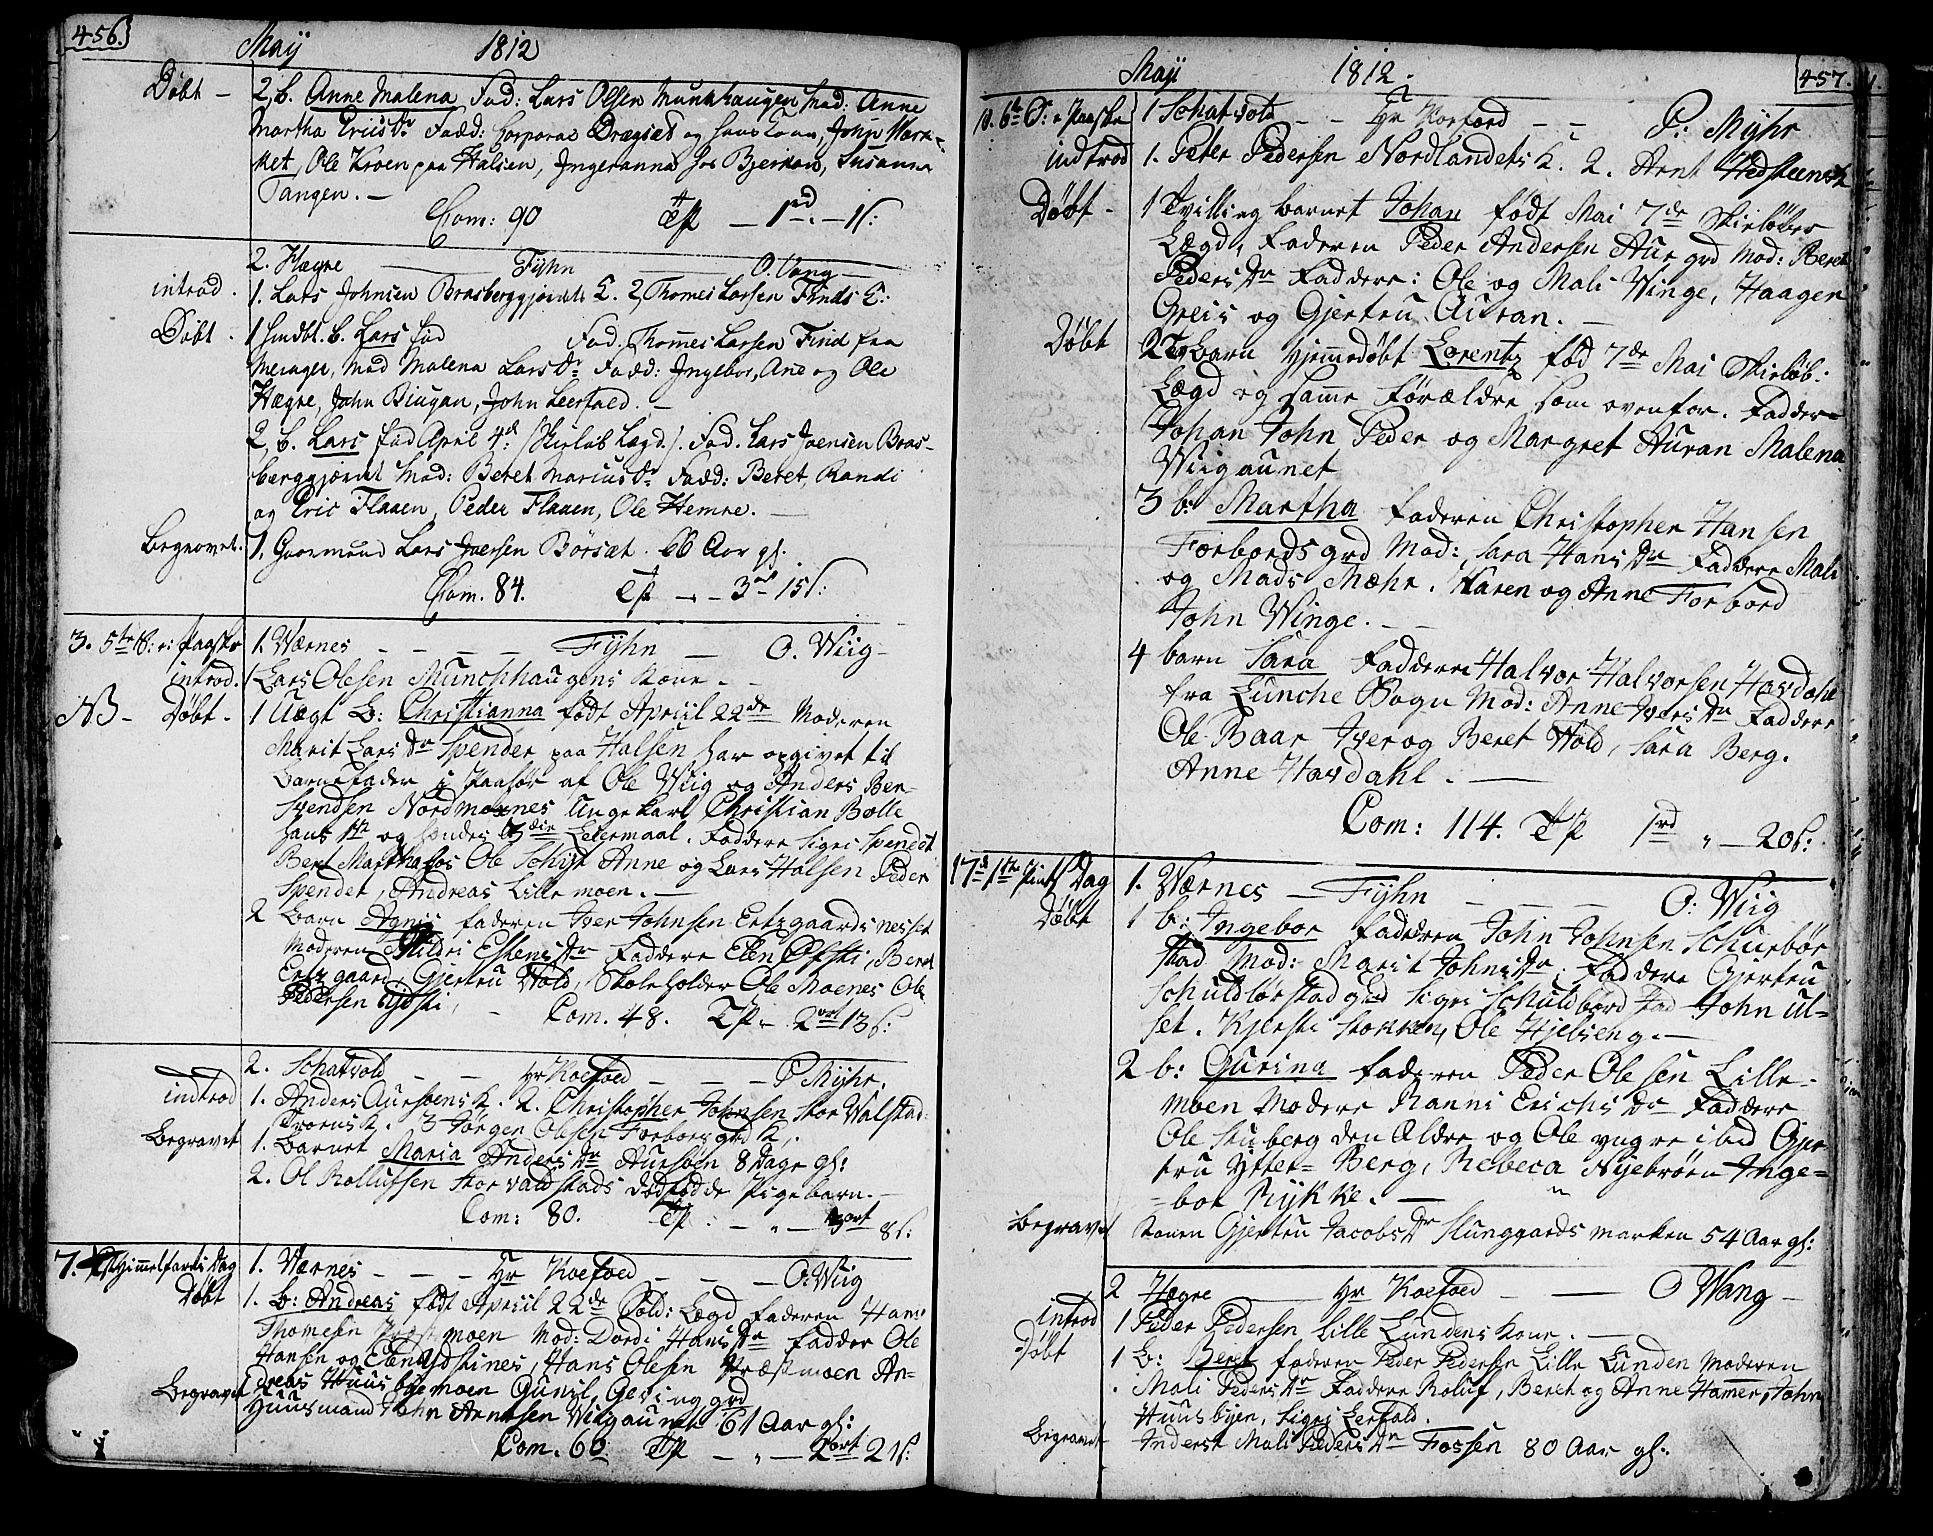 456.
Maij 1812
Døbt - 2, b. Anne Malena Fad: Lars Olsen Munkhaugen Mad: Anne
Martha Erics Dr Fadd: Corporal Dragsæt og hans Kone, John Mark-
ket, Ole Kroen paa Halsen, Ingeranna hos Bjerkan, Susanna
Tangen. -
Com: 90 Tp - 1 rd. - 1 s:
2. Hægre - Fyhn - O. Vang -
introd. 1. Lars Johnsen Brasberggjerdets K. 2, Thomes Larsen Finds K:
Døbt. 1 hmdbt. b. Lars fød Fad. Thomes Larsen Find fra
Merager, Mad Malena Lars Dr Fadd: Ingebor, Ane og Ole
Hægre, John Biugan, John Leerfald. -
2, b. Lars fød April 4de (Skirløb Lægd.) Fad. Lars Joensen Bras-
berggjerdet Mad: Beret Marius Dr Fadd: Beret, Randi
og Eric Flaaen, Peder Flaaen, Ole Hemre. -
Begravet. 1. Gaarmand Lars Joersen Børsæt. 66 Aar gl.
Com. 84. Tp - - 3 ort 15 s:
3. 5te S: e: Paaske 1. Værnes - - - - Fyhn - O. Wiig -
introd. 1 Lars Olesen Munchhaugens Kone. -
NB - Døbt - 1 Uægt B: Christianna født Apriil 22de Moderen
Marit Lars Dr Spender paa Halsen har opgivet til
Barnefader i Paasør af Ole Wiig og Anders Ben-
Svendsen Nordmøernes Ungekarl Christian Bolle
hans 1te og hendes 3die Leiermaal. Faddere Sigri Spendet
Beret Martha hos Ole Schist Anne og Lars Halsen Peder
Spendet, Andreas Lillemoen. -
2 Barn Agnis faderen Iver Johnsen Ertzgaardsnesset
Moderen Gildri Eskens Dr Faddere Elen Øfsti, Beret
Ertzgaard, Gjertru Wold, Skoleholder Ole Moenes Ole
Pedersen Øfsti, - Com. 48. Tp - 2 ort 13 s:
2. Schatvold - - Hr Koefoed - - - P Myhr.
indtrod 1. Anders Aursøens K. 2. Christopher Johnsen Stor Walstad:
Troens K. 3 Jørgen Olesen Forbors grd K,.
Begravet 1. Barnet Maria Anders Dr Aursøen 8 Dage gl:
2. Ol Rollufsen Storvaldstads dødfødde Pigebarn. -
Com: 80. Tp: - " - ort 8 s:
7. Chr Himmelfarts Dag 1. Værnes - - - Hr Koefoed - - - O: Wiig
Døbt 1. B: Andreas født Apriil 22de Sold: Lægd Faderen Hans
Thomesen moen Mod: Dordi Hans Dr Fadder Ole
Hansen og Elen Ydstines, Hans Olesen Præstmoen An-
dreas Huusbyemoen Gunil Geving grd
Begravet 1 Huusmand John Arntsen Wiigaunet 61 Aar gl:
Com. 60 Tp - " - 2 ort 2 s:
457.
Maji 1812.
10. 6te S: e Paaske 1 Schatvold - - Hr Korfoed - - P: Myhr
indtrod 1. Peter Pedersen Nordlandets K. 2. Arnt Hedsteens K
Døbt - 1 Tvilling barnet Johan født Mai 7de Skirløbes
Lægd, Faderen Peder Andersen Aur grd Mod: Beret
Peders Dr Faddere: Ole og Mali Winge, Haagen
Greis og Gjertru Auran. -
Døbt 2 Tv Barn hjemmedøbt Lorentz fød 7de Mai Skirløb:
Lægd og samme Forældre som ovenfor. Fadder-
Johan John Peder og Margret Auran Malena
Wiigaunet
3 b: Martha Faderen Christopher Hansen
Forbords grd Mod: Sara Hans Dr Faddere Mali
og Mads Mæhr. Karen og Anne Forbord
John Winge. -
4 barn Sara Fadderre Halvor Halvorsen Hovdahl
fra Lunche Sogn Mod: Anne Ivers Dr Faddere
Ole Baar Iver og Beret Wold, Sara Berg.
Anne Havdahl. -
Com: 114. Tp 1 rd " - 20 s:
17de 1te Pints Dag 1. Værnes - Fyhn - - - O: Wiig
Døbt 1 b: Ingebor Faderen John Johnsen Schuelbør
stad Mod: Marit Johns Dr. Faddere Gjertru
Schuldbørstad grd Sigri Schuldbørstad John Ul-
set. Kjersti Stokken, Ole Hjelseng. -
2 b: Gurina Faderen Peder Olesen Lille-
moen Modere Ranni Erichs Dr Faddere
Ole Stuberg den Ældre og Ole yngre ibid Gjer
tru Ytter- Berg, Rebeca Nyebrøen Inge-
-bor Rykke. -
Begravet Konen Gjertru Jacobs Dr Slunggaards marken 54 Aar gl:
2 Hægre - Hr Koefoed - - O Wang -
introd 1 Peder Pedersen Lille Lundens Kone. -
Døbt 1 B: Beret Faderen Peder Pedersen Lille Lunden Moderen
Mali Peders Dr Faddere Roluf, Beret og Anne Hamer, John
Huusbyen, Sigri Lerfald.
Begravet Inderst Mali Peders Dr Fossen 80 Aar gl: